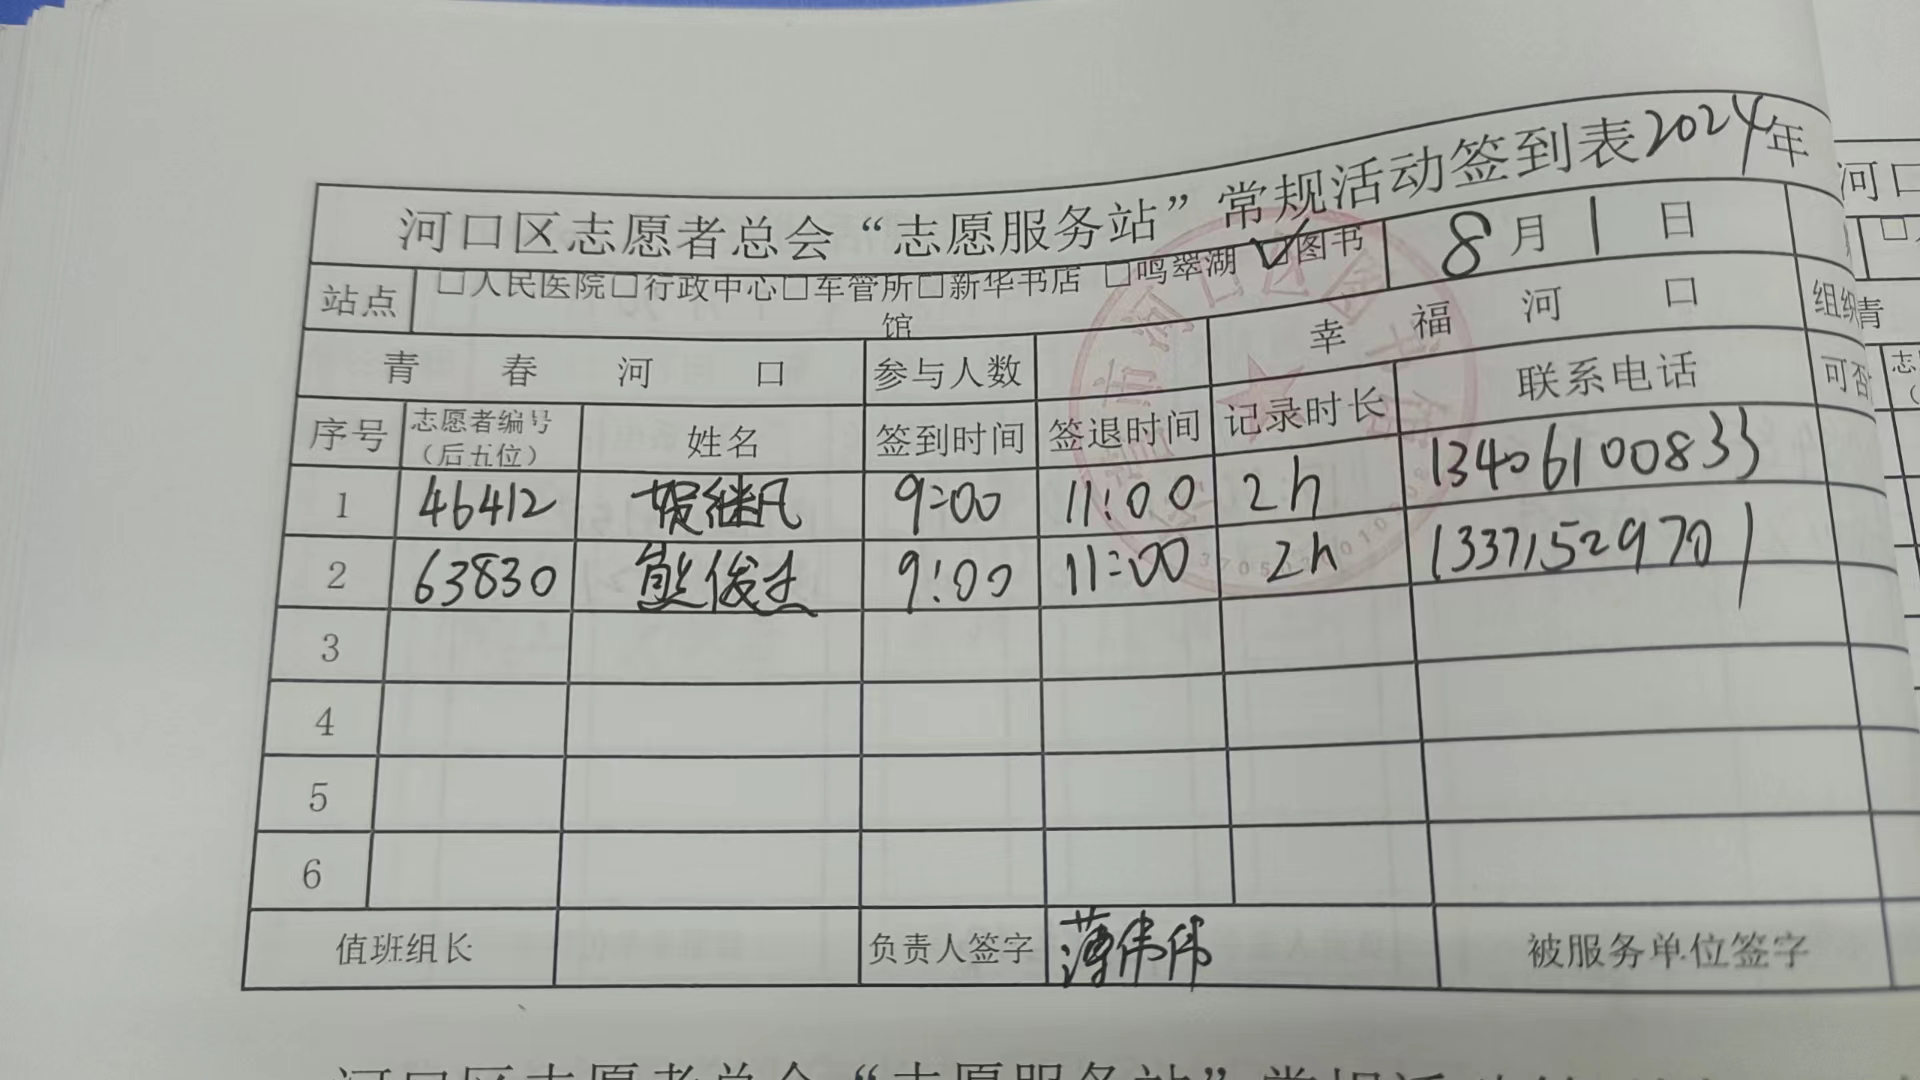 河口区志愿者总会“志愿服务站”常规活动签到表2024年
站点 □人民医院□行政中心□车管所□新华书店 □鸣翠湖 ☑图书馆 8月1日
青春河口 参与人数 幸福河口 组织
序号 志愿者编号（后五位） 姓名 签到时间 签退时间 记录时长 联系电话 可否
1 46412 贺继凡 9:00 11:00 2h 13406100833
2 63830 熊俊杰 9:00 11:00 2h 13371529701
3
4
5
6
值班组长 负责人签字 薄伟伟 被服务单位签字
河口
青
河口区志愿者总会“志愿服务站”常规活动